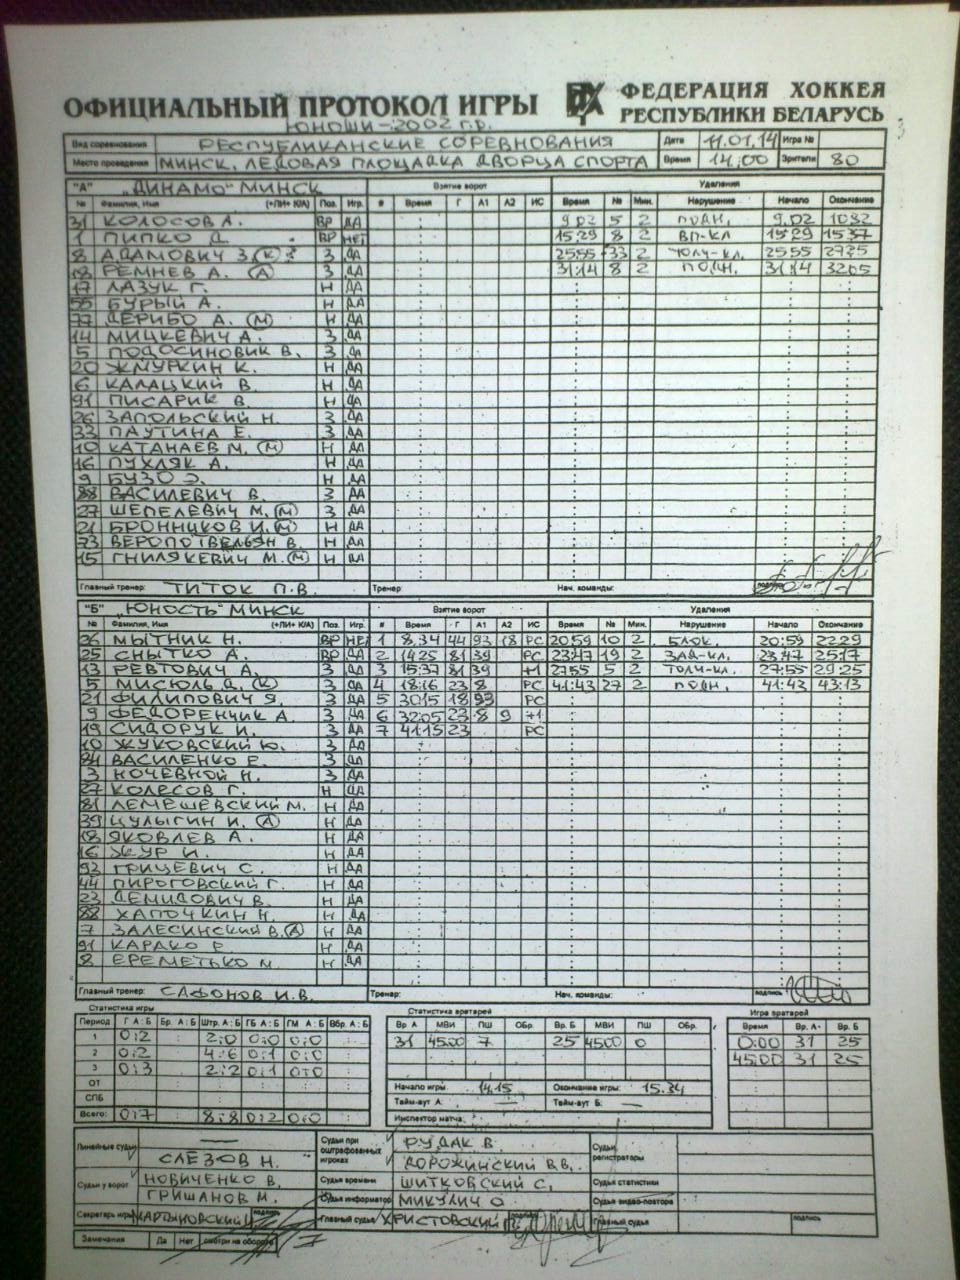 ОФИЦИАЛЬНЫЙ ПРОТОКОЛ ИГРЫ
ФЕДЕРАЦИЯ ХОККЕЯ
РЕСПУБЛИКИ БЕЛАРУСЬ
ЮНОШИ-2002 г.р.
Вид соревнования РЕСПУБЛИКАНСКИЕ СОРЕВНОВАНИЯ Дата 11.01.14 Игра №
Место проведения МИНСК. ЛЕДОВАЯ ПЛОЩАДКА ДВОРЦА СПОРТА Время 14:00 Зрители 80
"А" „ДИНАМО" МИНСК Взятие ворот Удаления
№ Фамилия, Имя (*ПИ* К/А) Поз. Игр. # Время Г А1 А2 ИС Время № Мин. Нарушение Начало Окончание
31 КОЛОСОВ А. ВР ДА 9.02 5 2 ПОДН. 9.02 10.32
1 ПИПКО Д. ВР НЕТ 15:29 8 2 ВП-КЛ 15:29 15:37
8 АДАМОВИЧ З. (К) З ДА 25:55 33 2 ТОЛЧ-КЛ. 25:55 27:25
18 РЕМНЕВ А. (А) З ДА 31:14 8 2 ПОДН. 31:14 32:05
17 ЛАЗУК Г. Н ДА
55 БУРЫЙ А. Н ДА
77 ДЕРИБО А. (М) Н ДА
14 МИЦКЕВИЧ А. З ДА
5 ПОДОСИНОВИК В. З ДА
20 ЖМУРКИН К. Н ДА
6 КАЛАЦКИЙ В. Н ДА
91 ПИСАРИК В. Н ДА
26 ЗАПОЛЬСКИЙ Н. З ДА
33 ПАУТИНА Е. З ДА
10 КАТАНАЕВ М. (М) Н ДА
16 ПУХЛЯК А. Н ДА
9 БУЗО Э. Н ДА
88 ВАСИЛЕВИЧ В. З ДА
27 ШЕПЕЛЕВИЧ М. (М) З ДА
21 БРОННИКОВ И. (М) Н ДА
73 ВЕРОПОТВЕЛЬЯН В. Н ДА
15 ГНИЛЯКЕВИЧ М. (М) Н ДА
Главный тренер: ТИТОК П.В. Тренер: Нач. команды: подпись
"Б" „ЮНОСТЬ" МИНСК Взятие ворот Удаления
№ Фамилия, Имя (*ПИ* К/А) Поз. Игр. # Время Г А1 А2 ИС Время № Мин. Нарушение Начало Окончание
36 МЫТНИК Н. ВР НЕТ 1 8.34 44 93 18 РС 20:59 10 2 БЛОК. 20:59 22:29
25 СНЫТКО А. ВР ДА 2 14:25 81 39 РС 23:47 19 2 ЗАД-КЛ. 23:47 25:17
13 РЕВТОВИЧ А. З ДА 3 15:37 81 39 +1 27:55 5 2 ТОЛЧ-КЛ. 27:55 29:25
5 МИСЮЛЬ Д. (К) З ДА 4 18:16 23 8 РС 41:43 27 2 ПОДН. 41:43 43:13
21 ФИЛИПОВИЧ Я. З ДА 5 30:15 18 93 РС
9 ФЕДОРЕНЧИК А. З ДА 6 32:05 23 8 9 +1
19 СИДОРУК И. З ДА 7 41:15 23 РС
10 ЖУКОВСКИЙ Ю. З ДА
84 ВАСИЛЕНКО Е. З ДА
3 НОЧЕВНОЙ Н. З ДА
27 КОЛЕСОВ Г. Н ДА
81 ЛЕМЕШЕВСКИЙ М. Н ДА
39 ЦУЛЫГИН И. (А) Н ДА
18 ЯКОВЛЕВ А. Н ДА
16 ЖУР И. Н ДА
93 ГРИЦЕВИЧ С. Н ДА
44 ПИРОГОВСКИЙ Г. Н ДА
23 ДЕМИДОВИЧ В. Н ДА
88 ХАПОЧКИН Н. Н ДА
7 ЗАЛЕСИНСКИЙ В. (А) Н ДА
91 КАРАКО Р. Н ДА
8 ЕРЕМЕТЬКО М. Н ДА
Главный тренер: САФОНОВ И.В. Тренер: Нач. команды: подпись
Статистика игры Статистика вратарей Игра вратарей
Период Г А : Б Бр. А : Б Штр. А : Б ГБ А : Б ГМ А : Б Вбр. А : Б Вр. А МВИ ПШ Обр. Вр. Б МВИ ПШ Обр. Время Вр. А Вр. Б
1 0:2 2:0 0:0 0:0 31 45:00 7 25 45:00 0 0:00 31 25
2 0:2 4:6 0:1 0:0 45:00 31 25
3 0:3 2:2 0:1 0:0
ОТ Начало игры 14.15 Окончание игры: 15.34
СПБ Тайм-аут А: — Тайм-аут Б: —
Всего: 0:7 8:8 0:2 0:0 Инспектор матча:
Линейные судьи — Судьи при оштрафованных игроках РУДАК В. Судьи регистраторы
СЛЕЗОВ Н. ДОРОЖИНСКИЙ В.В.
Судьи у ворот НОВИЧЕНКО В. Судья времени ШИТКОВСКИЙ С. Судьи статистики
ГРИШАНОВ М. Судья информатор МИКУЛИЧ О. Судья видео-повтора
Секретарь игры подпись Главный судья ХРИСТОВСКИЙ Главный судья подпись
Замечания Да Нет смотри на обороте